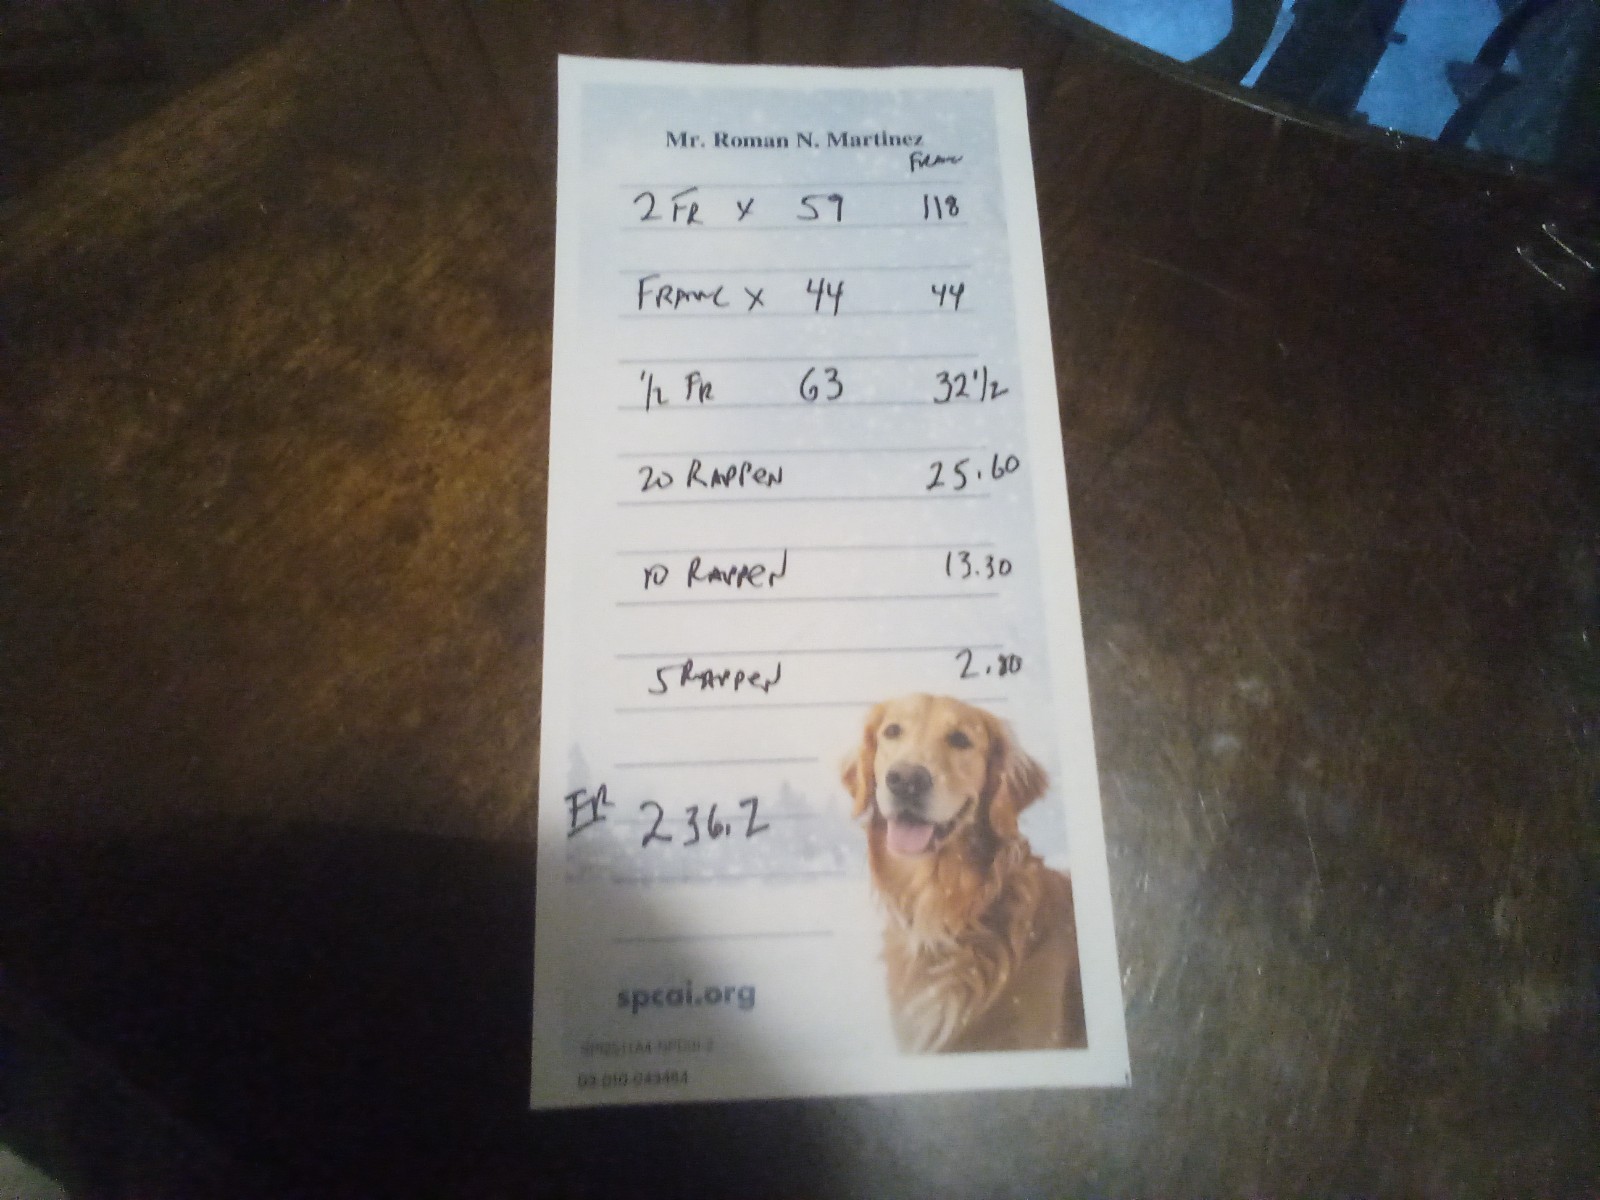 Mr. Roman N. Martinez
Franc
2 FR x 59 118
FRANC x 44 44
1/2 FR 63 32 1/2
20 RAPPEN 25.60
10 RAPPEN 13.30
5 RAPPEN 2.80
FR 236.2
spcai.org